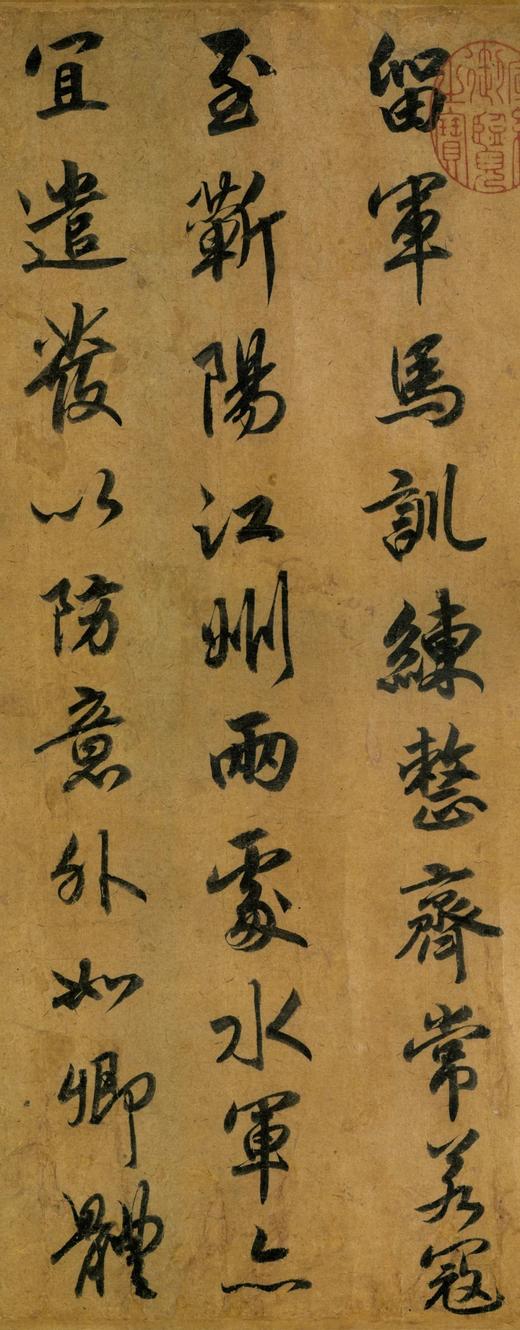 留軍馬訓練整齊常若寇
至蘄陽江州兩處水軍亦
宜遣發以防意外如卿體